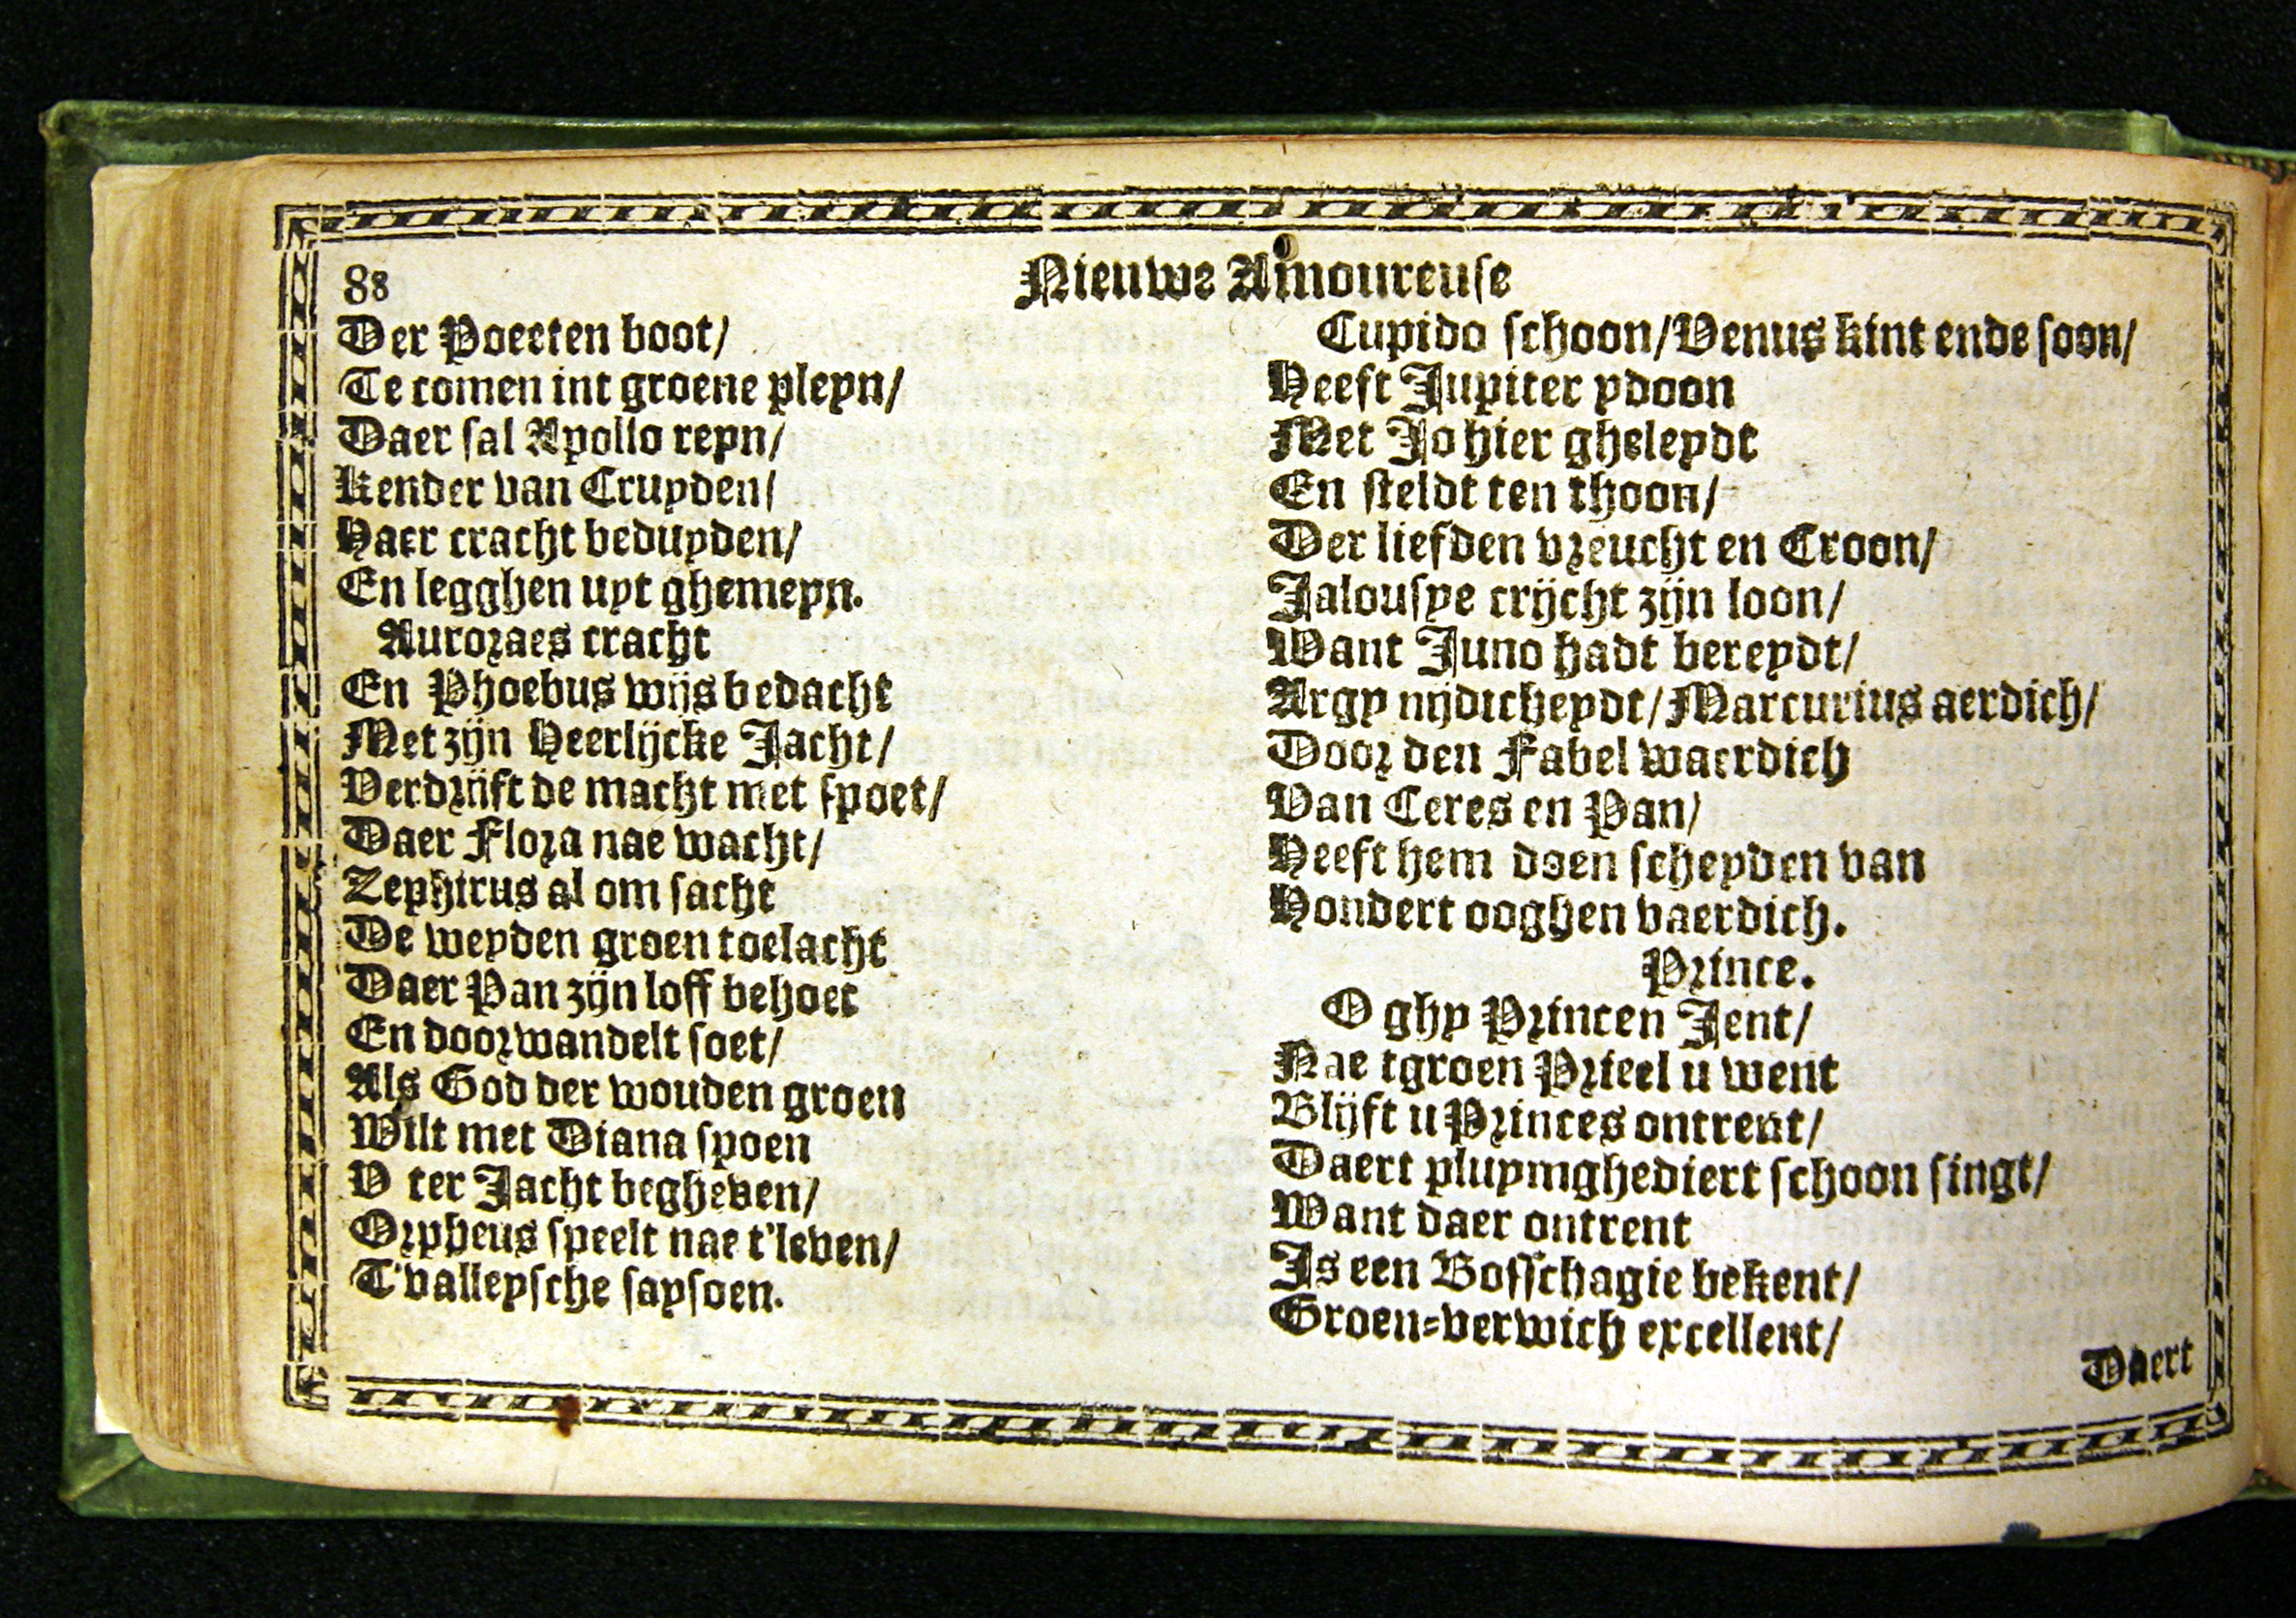 88
Nieuwe Amoureuse
Der Poeeten boot/
Te comen int groene pleyn/
Daer sal Apollo reyn/
Kender van Cruyden/
Haer cracht beduyden/
En legghen uyt ghemeyn.
Auroraes cracht
En Phoebus wijs bedacht
Met zijn Heerlijcke Jacht/
Verdrijft de macht met spoet/
Daer Flora nae wacht/
Zephirus al om sacht
De weyden groen toelacht
Daer Pan zijn loff behoet
En doorwandelt soet/
Als God der wouden groen
Wilt met Diana spoen
V ter Jacht begheven/
Orpheus speelt nae t'leven/
T'valleysche saysoen.
Cupido schoon/Venus kint ende soon/
Heeft Jupiter ydoon
Met Jo hier gheleydt
En steldt ten thoon/
Der liefden vreucht en Croon/
Jalousye crijcht zijn loon/
Want Juno hadt bereydt/
Argy nijdicheydt/Marcurius aerdich/
Door den Fabel waerdich
Van Ceres en Pan/
Heeft hem doen scheyden van
Hondert ooghen vaerdich.
Prince.
O ghy Princen Jent/
Nae tgroen Prieel u went
Blijft u Princes ontrent/
Daert pluymghediert schoon singt/
Want daer ontrent
Is een Bosschagie bekent/
Groen-verwich excellent/
Daert